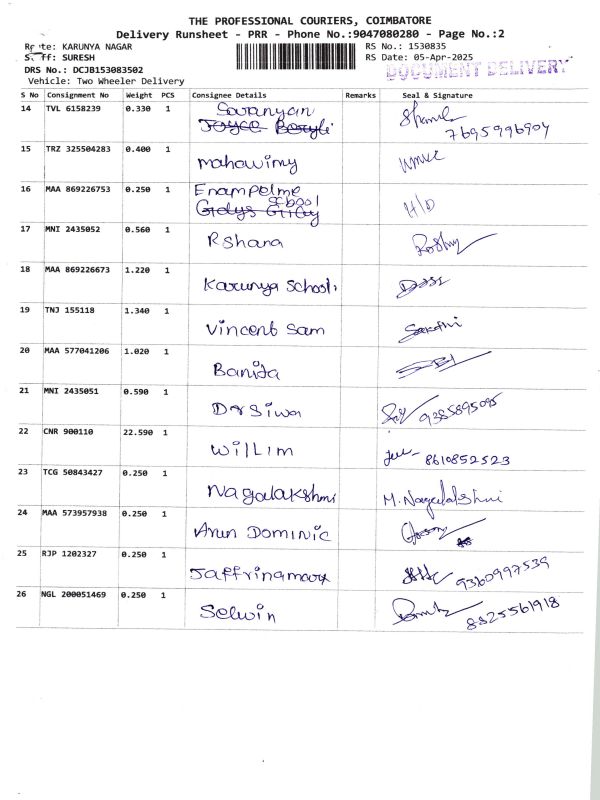 THE PROFESSIONAL COURIERS, COIMBATORE
Delivery Runsheet - PRR - Phone No.:9047080280 - Page No.:2
Route: KARUNYA NAGAR RS No.: 1530835
Staff: SURESH RS Date: 05-Apr-2025
DOCUMENT DELIVERY
DRS No.: DCJB153083502
Vehicle: Two Wheeler Delivery
S No Consignment No Weight PCS Consignee Details Remarks Seal & Signature
14 TVL 6158239 0.330 1 Saranyan
Joyce 7695996904
15 TRZ 325504283 0.400 1 mahowimy
16 MAA 869226753 0.250 1 Enampelme
School H/D
17 MNI 2435052 0.560 1 Rshana Roshny
18 MAA 869226673 1.220 1 Karunya School
19 TNJ 155118 1.340 1 Vincent Sam Sakthi
20 MAA 577041206 1.020 1 Banita
21 MNI 2435051 0.590 1 Dr Siwa 9385895095
22 CNR 900110 22.590 1 WilLim 8610852523
23 TCG 50843427 0.250 1 Nagalakshmi M. Nagalakshmi
24 MAA 573957938 0.250 1 Arun Dominic
25 RJP 1202327 0.250 1 9360997539
26 NGL 200051469 0.250 1 Selwin 8825561918